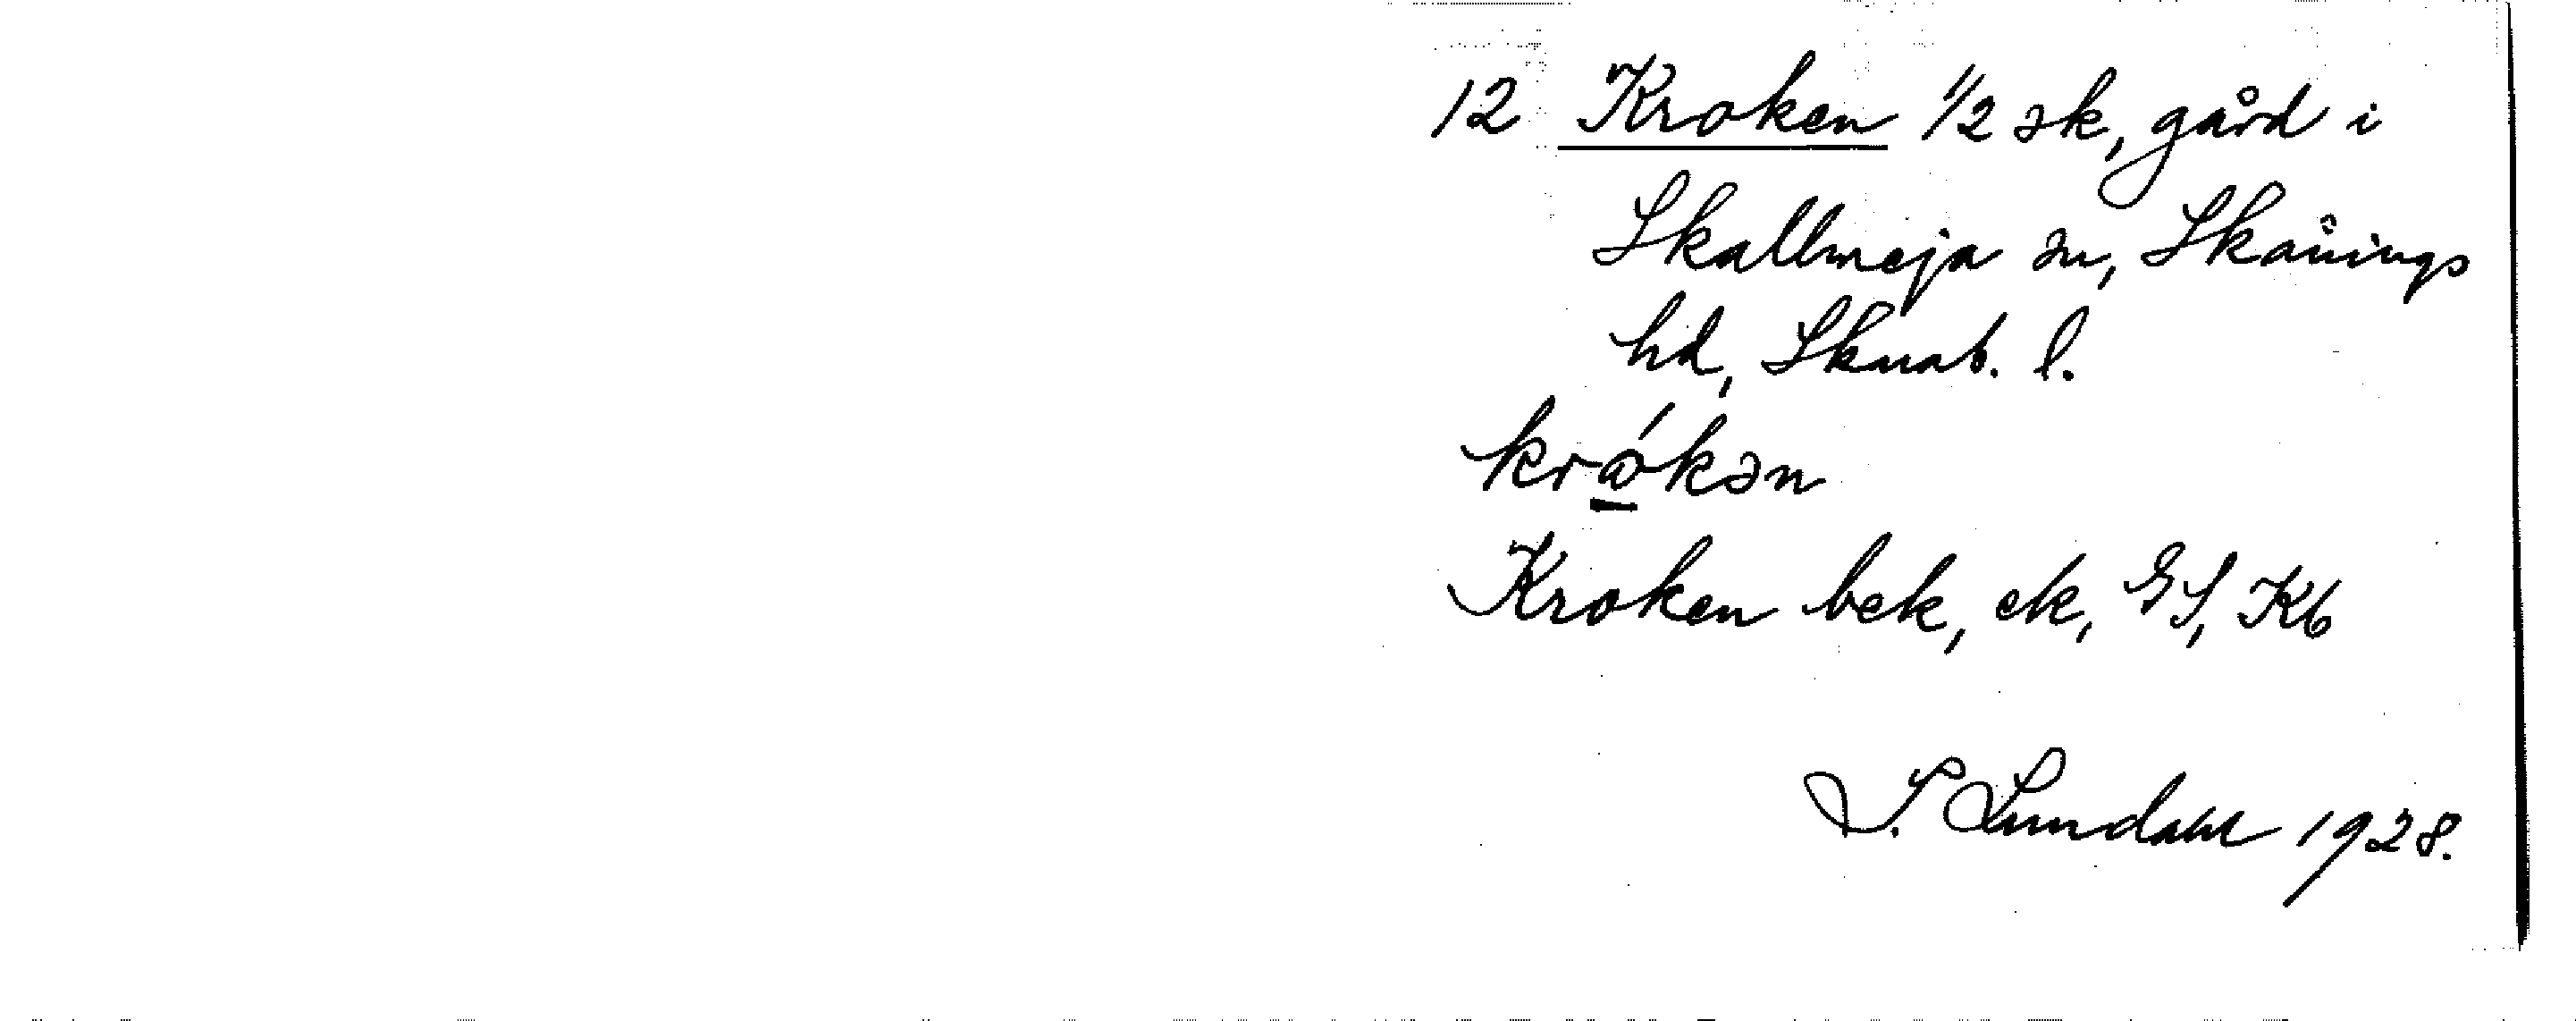 12 Kroken 1/2 sk, gård i
Skallmeja sn, Skånings
hd, Skarab. l.
krώkən
Kroken bek, ek, GS, Kb
S. Lundahl 1928.